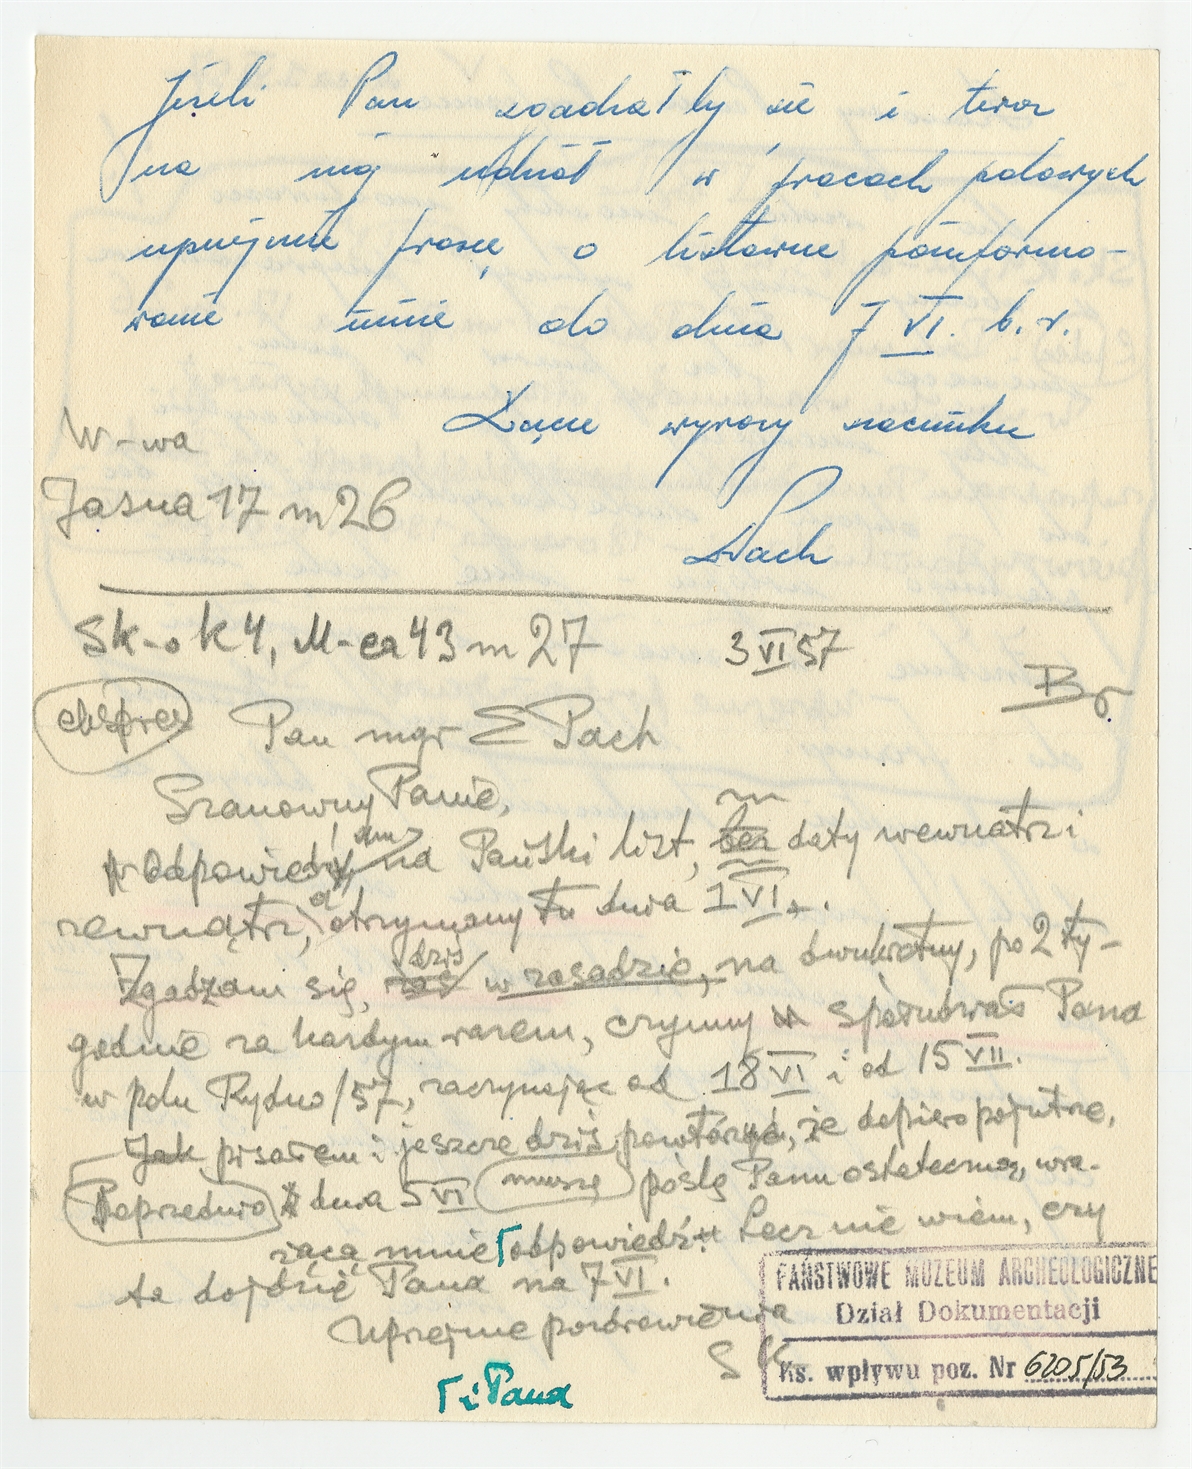 Jeżeli Pan zgadzałby się i teraz
na mój udział w pracach polowych
uprzejmie proszę o listowne poinformo-
wanie mnie do dnia 7 VI. b. r.
Łączę wyrazy szacunku
Pach
W-wa
Jasna 17 m 26
Sk-o k4, M-ca 43 m 27 3 VI 57
Br
ekspres Pan mgr E Pach
Szanowny Panie,
Odpowiadam na Pański list, bez daty wewnątrz i
zewnątrz, a otrzymany tu dnia 1 VI.
Zgadzam się, dziś w zasadzie, na dwukrotny, po 2 ty-
godnie za każdym razem, czynny spółudział Pana
w polu Rydno/57, zaczynając od 18 VI i od 15 VII.
Jak pisałem i jeszcze dziś powtórzę, że dopiero pojutrze,
Poprzednio dnia 5 VI muszę poślę Panu ostateczną, wią-
żącą mnie odpowiedź. Lecz nie wiem, czy
ta dojdzie Pana na 7 VI.
Uprzejme pozdrowienia
SK
i Pana
PAŃSTWOWE MUZEUM ARCHEOLOGICZNE
Dział Dokumentacji
Ks. wpływu poz. Nr 6205/53